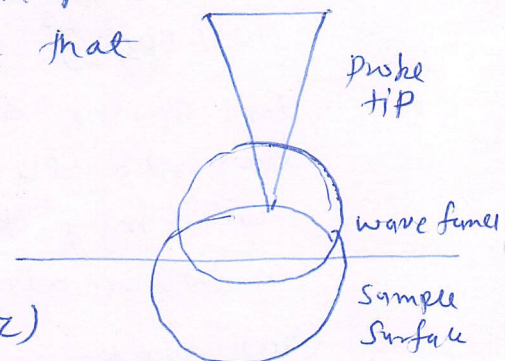 that
Probe
tip
wave
Sample
Surface
z)